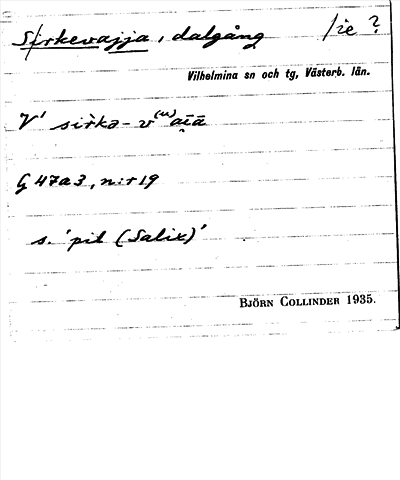 Sirkevajja, dalgång /ie ?
Vilhelmina sn och tg, Västerb. län.
V' sìrkə- v⁽ᵘ⁾a̱i̯ā
G 47a3, n:r 19
s. 'pil (Salix)'
BJÖRN COLLINDER 1935.